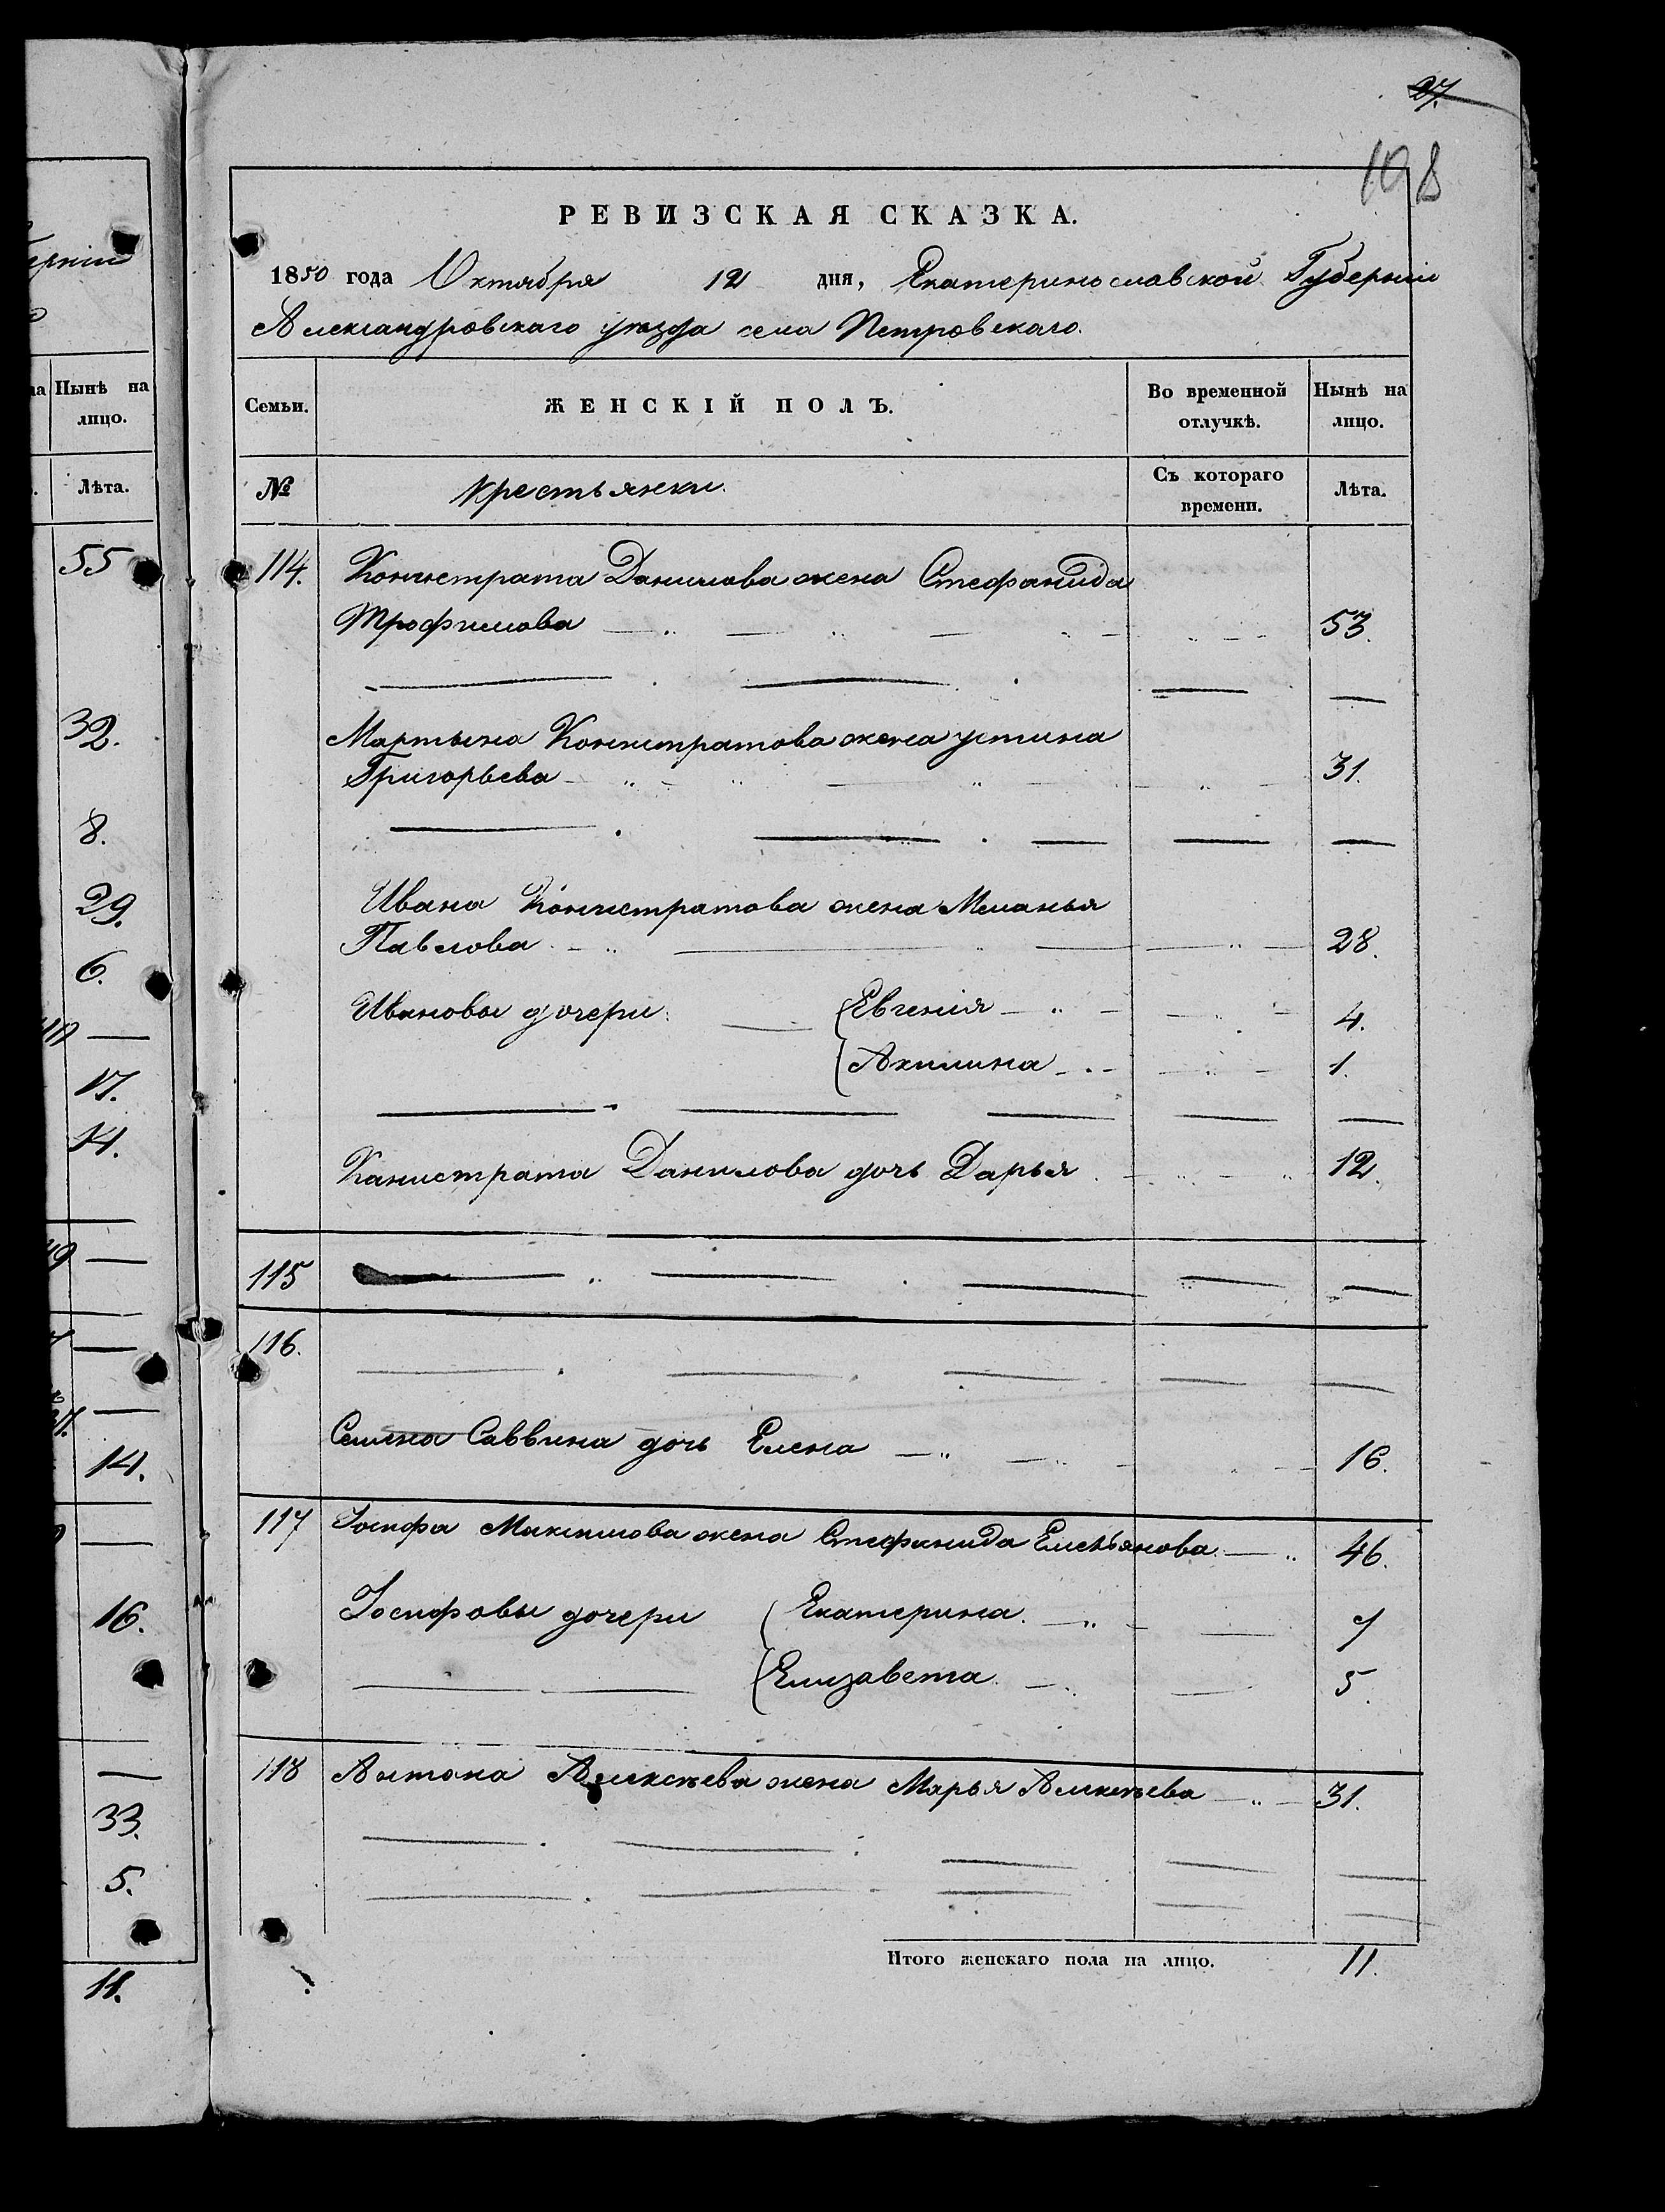 27.
198
РЕВИЗСКАЯ СКАЗКА.
1850 года Октября 12 дня, Екатеринославской Губернiи
Александровскаго уѣзда села Петровскаго.
Семьи. ЖЕНСКIЙ ПОЛЪ. Во временной отлучкѣ. Нынѣ на лицо.
№ Крестьянки. Съ котораго времени. Лѣта.
114. Конистрата Данилова жена Стефанида
Трофимова 53.
Мартына Конистратова жена устина
Григорьева 31.
Ивана Конистратова жена Меланья
Павлова 28.
Ивановы дочери Евгенiя 4.
Акилина 1.
Канистрата Данилова дочь Дарья 12.
115
116.
Семена Саввина дочь Елена 16.
117 Iосифа Максимова жена Стефанида Емельянова 46.
Iосифовы дочери Екатерина 9
Елизавета 5.
118 Антона Алексѣева жена Марья Алексѣева 31.
Итого женскаго пола на лицо. 11.
Нынѣ на
лицо.
Лѣта.
55
32.
8.
29.
6.
17.
14.
14.
16.
33.
5.
11.